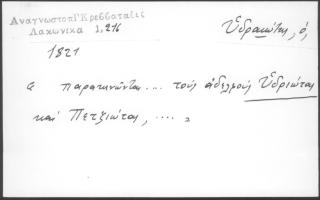 Ἀναγνωστοπ Κρεββαταῖες
Λακωνικα 1,216
Ὑδρα<ι>ώτης, ὁ,
1821
" παρακινῶντας... τοὺς ἀδελφοὺς Ὑδριώτας
καὶ Πετζιώτας, .... "